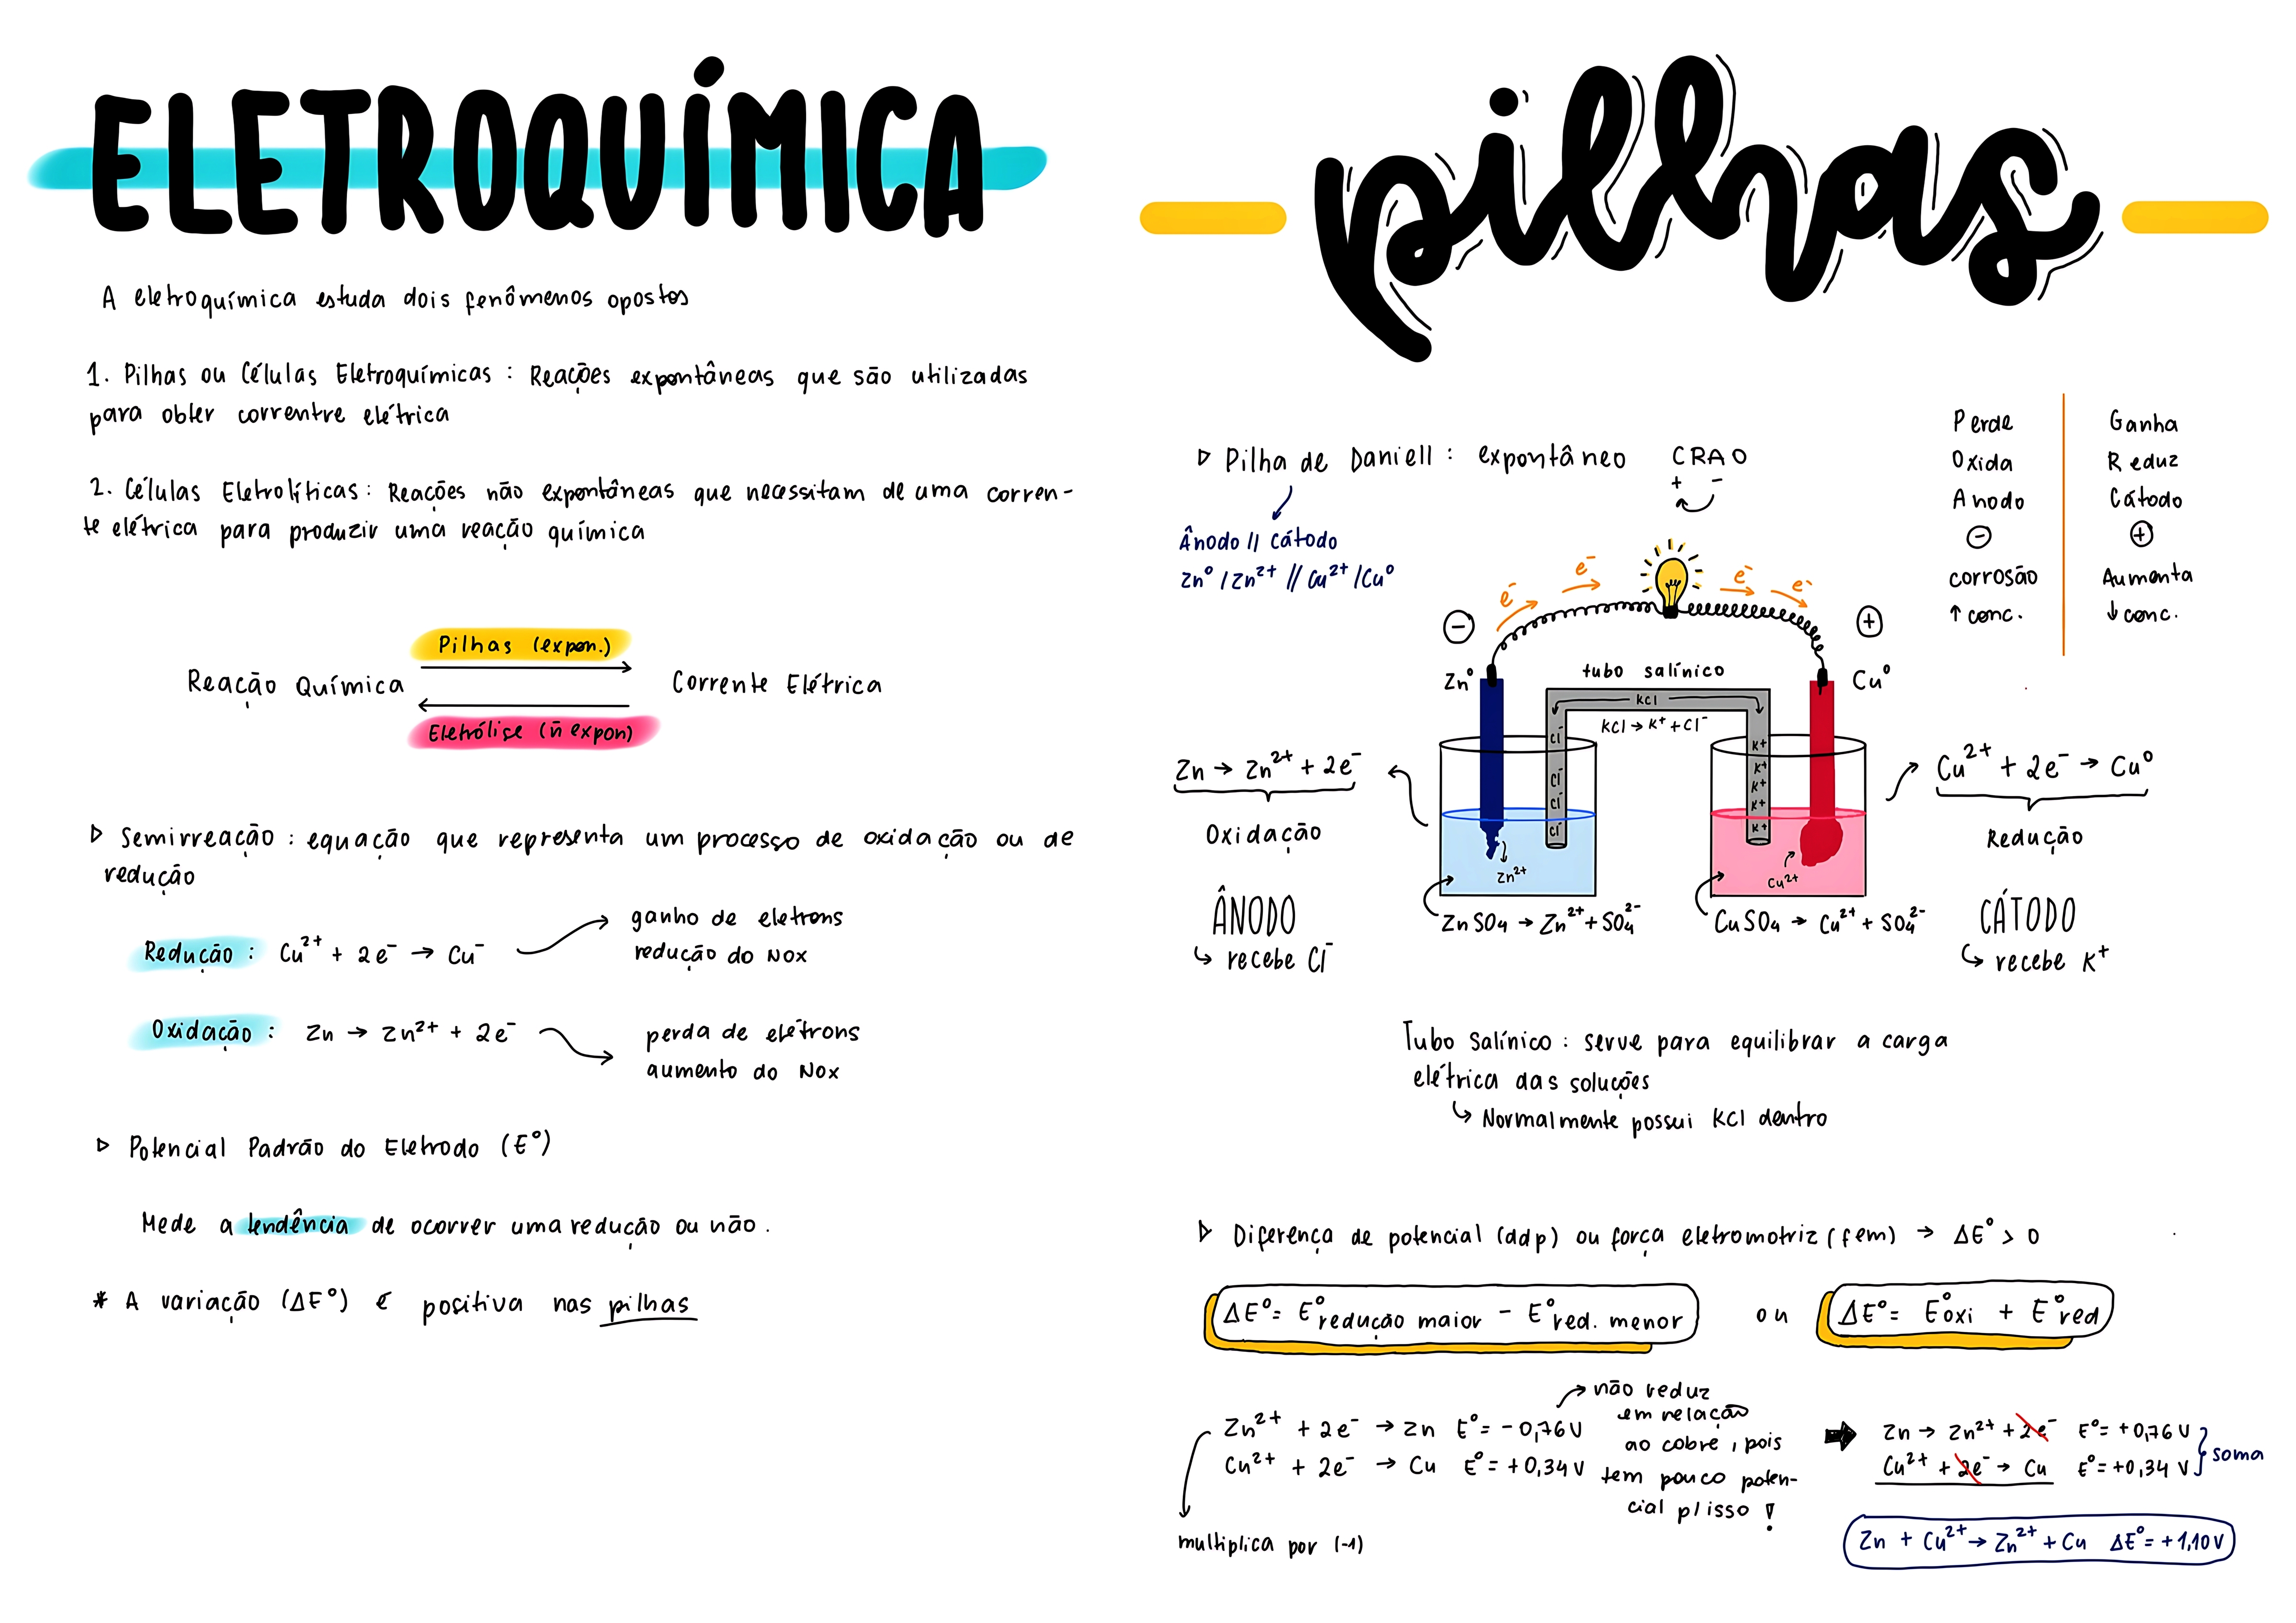 ELETROQUÍMICA
A eletroquímica estuda dois fenômenos opostos
1. Pilhas ou Células Eletroquímicas : Reações expontâneas que são utilizadas
para obter correntre elétrica
2. Células Eletrolíticas : Reações não expontâneas que necessitam de uma corren-
te elétrica para produzir uma reação química
Pilhas (expon.)
Reação Química
Corrente Elétrica
Eletrólise (ñ expon)
▷ Semirreação : equação que representa um processo de oxidação ou de
redução
Redução : Cu²⁺ + 2e⁻ → Cu⁻
ganho de eletrons
redução do Nox
Oxidação : Zn → Zn²⁺ + 2e⁻
perda de elétrons
aumento do Nox
▷ Potencial Padrão do Eletrodo (E°)
Mede a tendência de ocorrer uma redução ou não.
* A variação (ΔE°) é positiva nas pilhas
pilhas
▷ Pilha de Daniell : expontâneo CRAO
+ -
Ânodo // cátodo
Zn° / Zn²⁺ // Cu²⁺ / Cu°
Perde Ganha
Oxida Reduz
Anodo Cátodo
⊖ ⊕
corrosão Aumenta
↑ conc. ↓ conc.
e⁻ e⁻ e⁻ e⁻
⊖ ⊕
Zn° tubo salínico Cu°
KCl
KCl → K⁺ + Cl⁻
Cl⁻
Cl⁻
Cl⁻
Cl⁻
K⁺
K⁺
K⁺
K⁺
K⁺
Zn²⁺
Cu²⁺
Zn → Zn²⁺ + 2e⁻
Oxidação
ÂNODO
↳ recebe Cl⁻
ZnSO₄ → Zn²⁺ + SO₄²⁻
CuSO₄ → Cu²⁺ + SO₄²⁻
Cu²⁺ + 2e⁻ → Cu°
Redução
CÁTODO
↳ recebe K⁺
Tubo Salínico : serve para equilibrar a carga
elétrica das soluções
↳ Normalmente possui KCl dentro
▷ Diferença de potencial (ddp) ou força eletromotriz (fem) → ΔE° > 0
ΔE° = E° redução maior - E° red. menor ou ΔE° = E°oxi + E°red
Zn²⁺ + 2e⁻ → Zn E° = - 0,76V
Cu²⁺ + 2e⁻ → Cu E° = +0,34V
multiplica por (-1)
não reduz
em relação
ao cobre, pois
tem pouco poten-
cial p/ isso !
Zn → Zn²⁺ + 2e⁻ E° = +0,76V
Cu²⁺ + 2e⁻ → Cu E° = +0,34 V
soma
Zn + Cu²⁺ → Zn²⁺ + Cu ΔE° = +1,10V